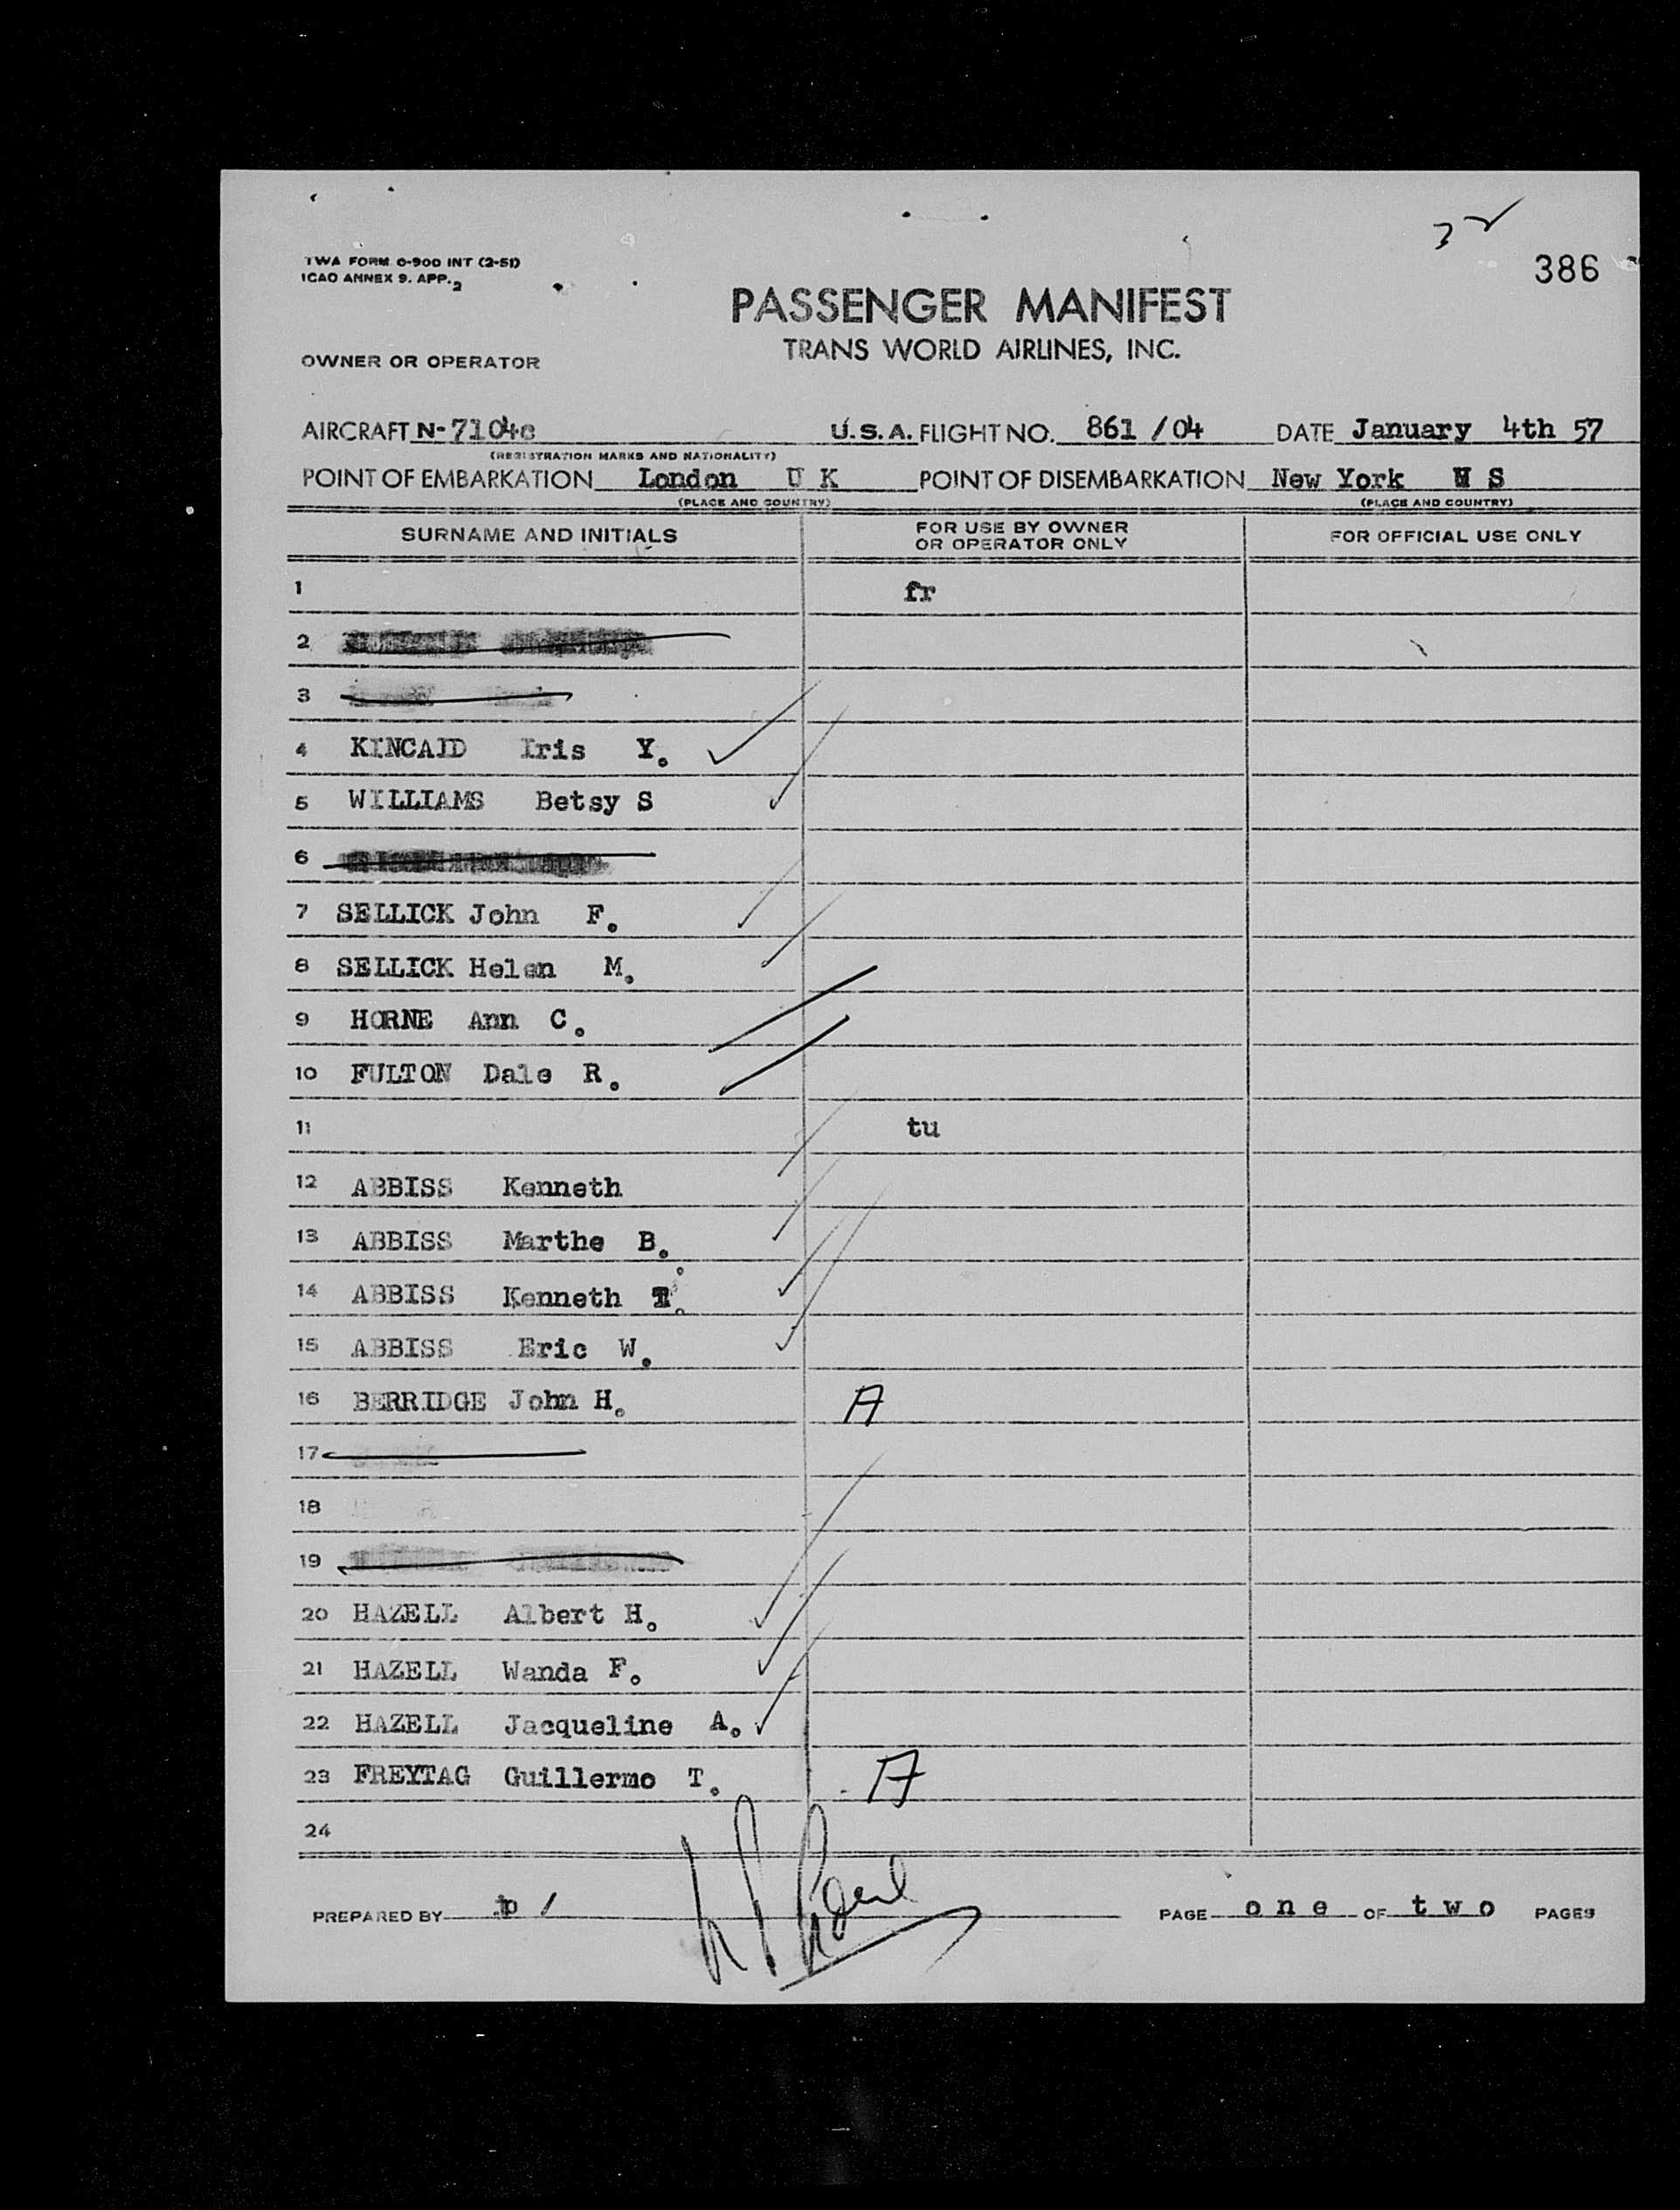 32
386
TWA FORM 0-900 INT (2-51)
ICAO ANNEX 9. APP. 2
PASSENGER MANIFEST
TRANS WORLD AIRLINES, INC.
OWNER OR OPERATOR
AIRCRAFT N-7104c U.S.A. FLIGHT NO. 861 /04 DATE January 4th 57
(REGISTRATION MARKS AND NATIONALITY)
POINT OF EMBARKATION London U K POINT OF DISEMBARKATION New York U S
(PLACE AND COUNTRY) (PLACE AND COUNTRY)
SURNAME AND INITIALS FOR USE BY OWNER OR OPERATOR ONLY FOR OFFICIAL USE ONLY
1 fr
2
3
4 KINCAID Iris Y.
5 WILLIAMS Betsy S
6
7 SELLICK John F.
8 SELLICK Helen M.
9 HORNE Ann C.
10 FULTON Dale R.
11 tu
12 ABBISS Kenneth
13 ABBISS Marthe B.
14 ABBISS Kenneth T.
15 ABBISS Eric W.
16 BERRIDGE John H. A
17
18
19
20 HAZELL Albert H.
21 HAZELL Wanda F.
22 HAZELL Jacqueline A.
23 FREYTAG Guillermo T. A
24
PREPARED BY p / PAGE one OF two PAGES